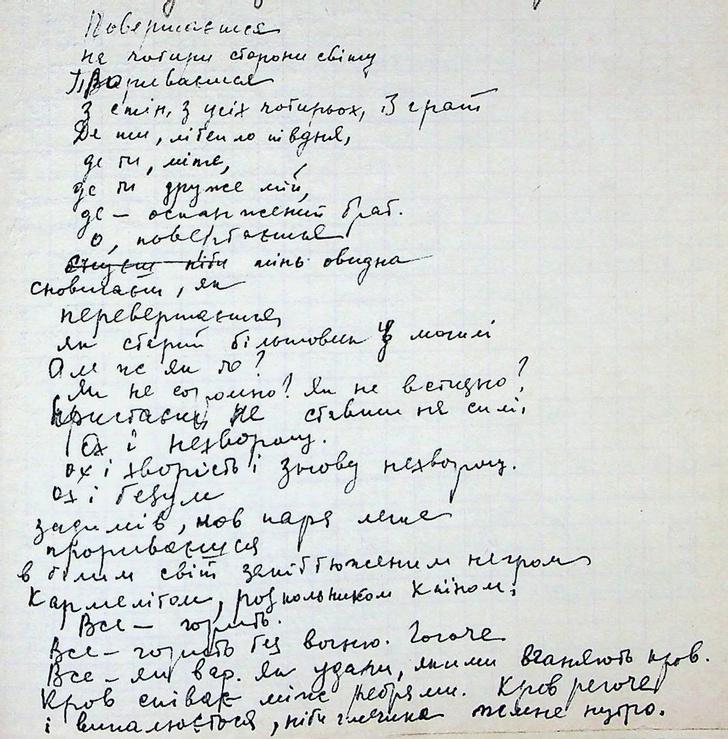 Повертаєшся
на чотири сторони світу
Вариваєшся
з стін, з усіх чотирьох, із грат
Де ти, лібело півдня,
де ти, літо,
де ти друже мій,
де — оскаржений брат.
О, повертаєшся
ніби тінь овидна
сновигаєш, як
перевертаєшся,
як старий більшовик у могилі
Але не як то?
Як не соромно? Як не встидно?
ставши на силі,
Ех і нехворощ.
ох і хворість і знову нехворощ.
ох і безум
задимів, мов пара лепе
прориваєшся
в білим світі негром
Кармелітом, розкольником Каїном,
Все — горить.
Все — горить без вогню. Гогоче
Все — як вар. Як удари, якими вганяють кров.
Кров співає між ребрами. Кров регоче
і випалюється, ніби глечика темне нутро.